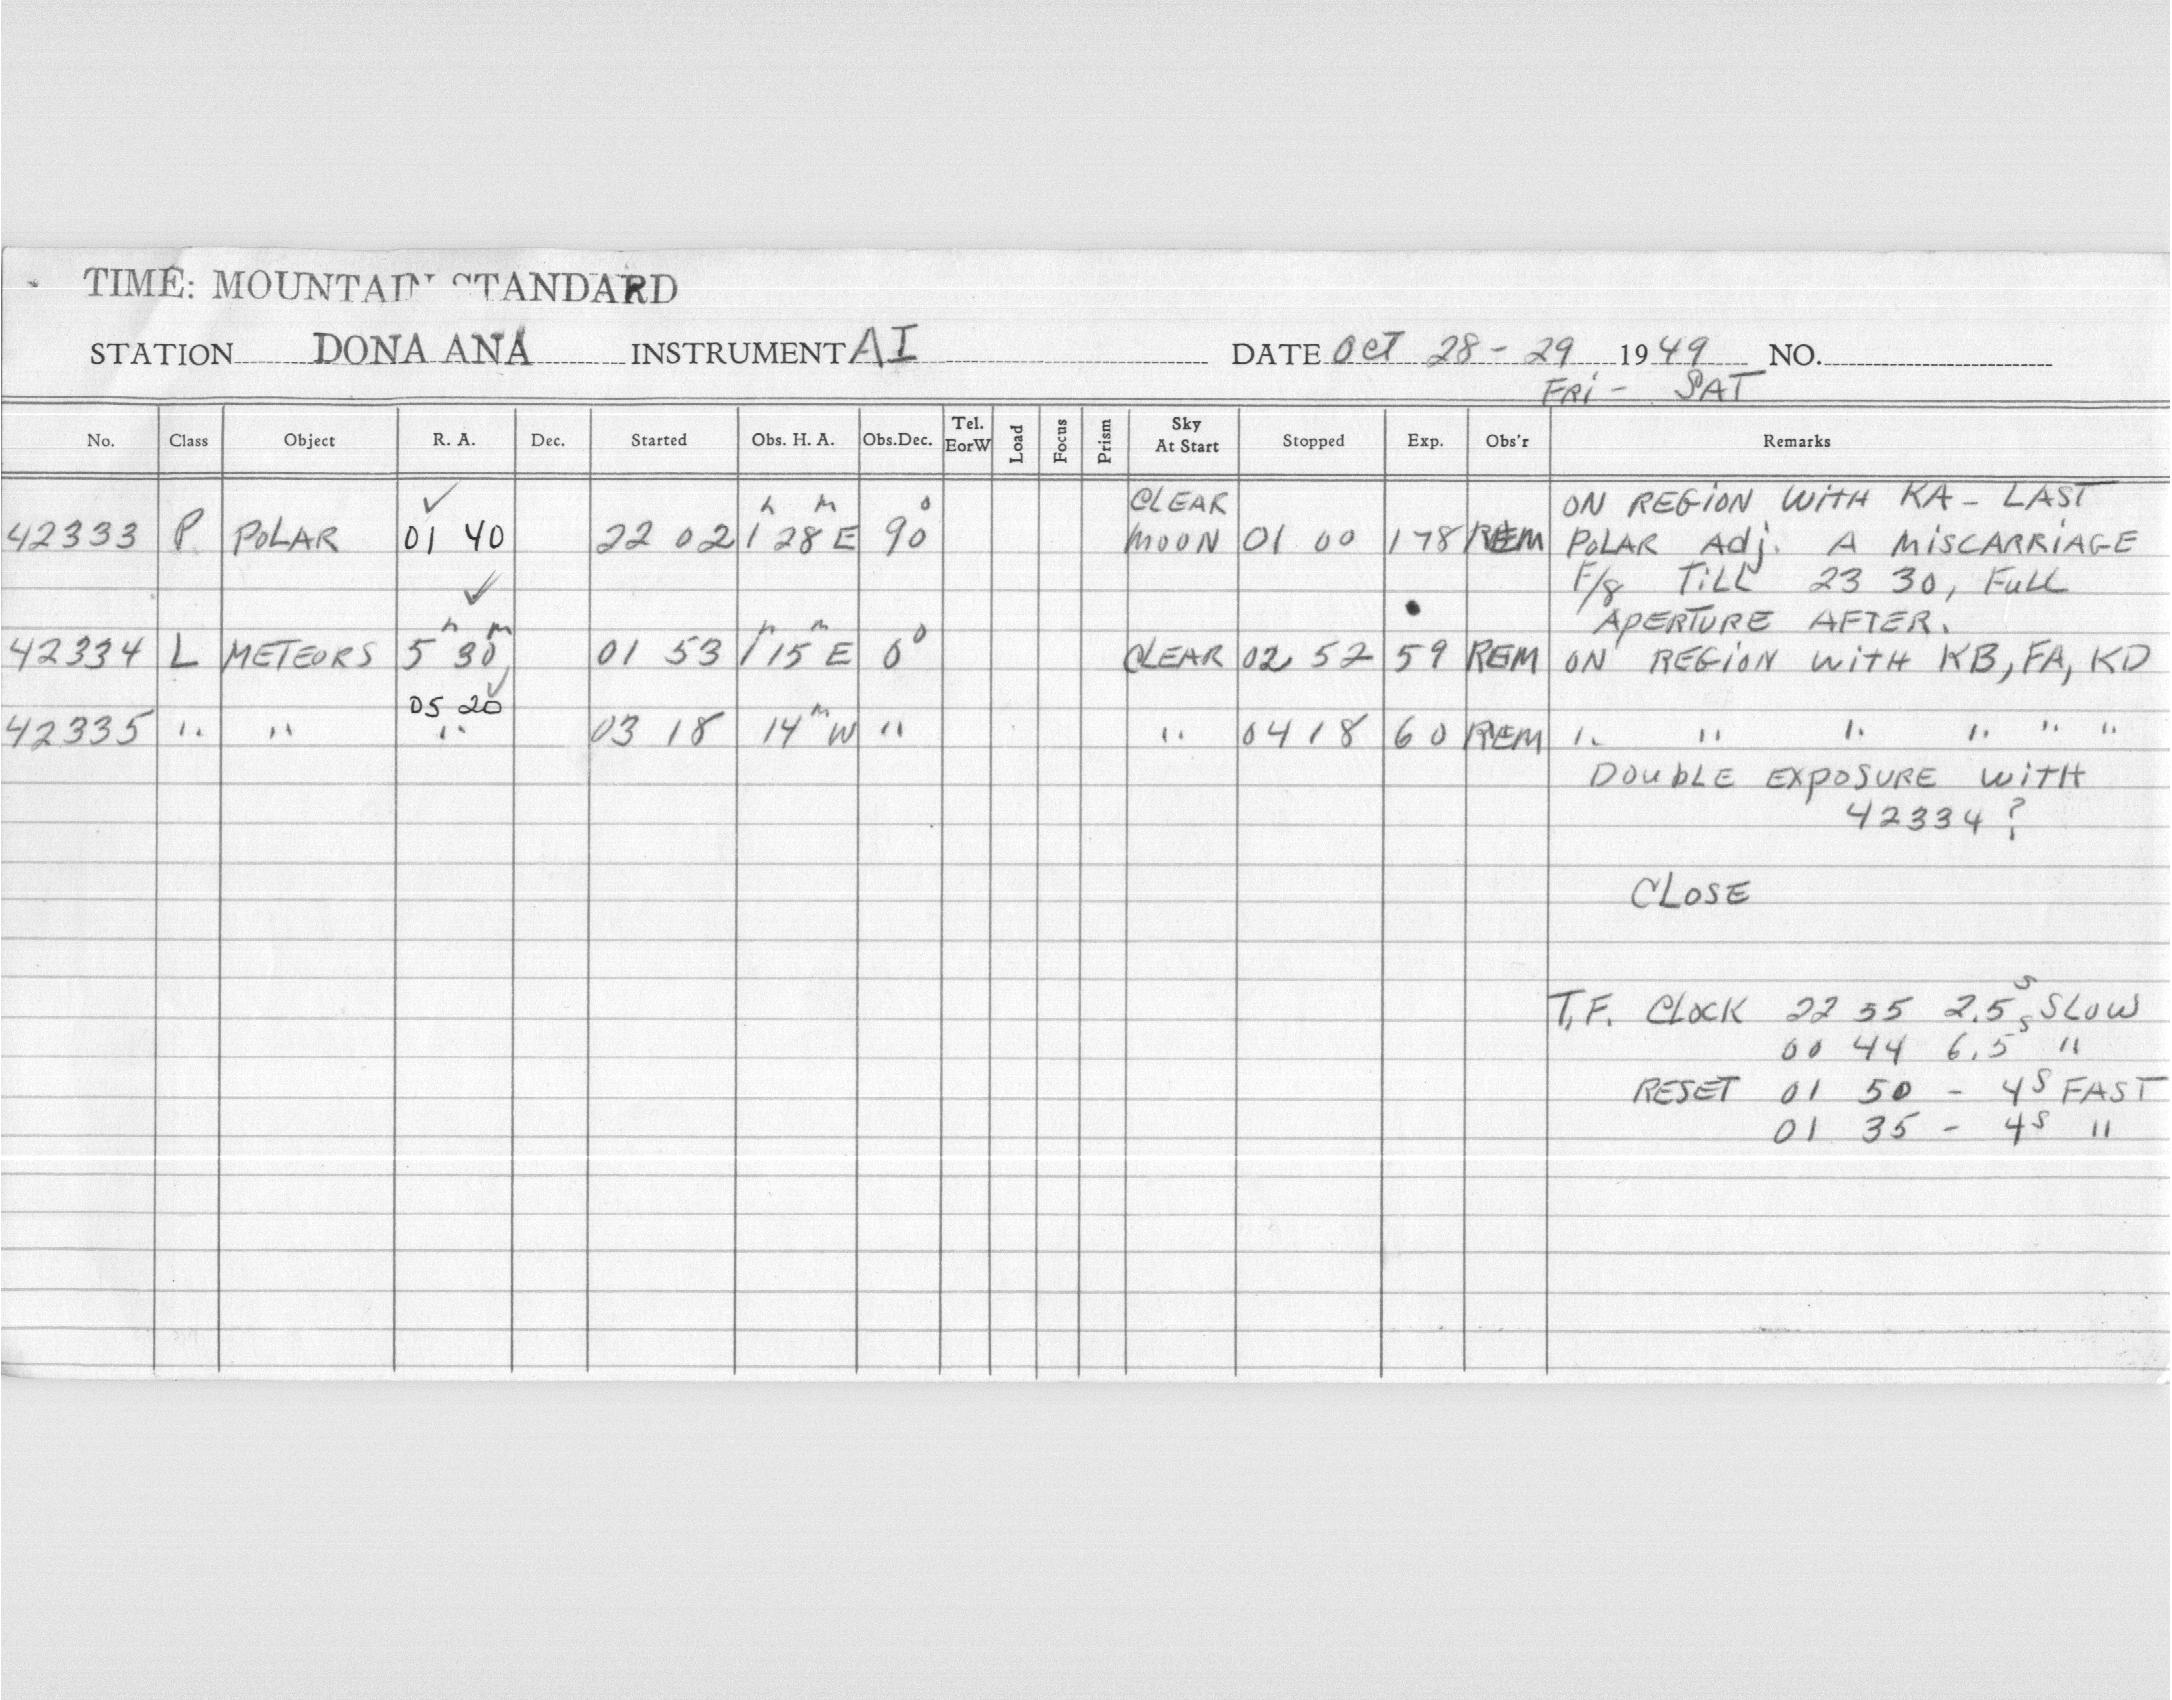 TIME: MOUNTAIN STANDARD
STATION DONA ANA INSTRUMENT AI DATE OCT 28 - 29 1949 NO.
FRI - SAT
No. Class Object R. A. Dec. Started Obs. H. A. Obs.Dec. Tel. EorW Load Focus Prism Sky At Start Stopped Exp. Obs'r Remarks
✓ h m o CLEAR ON REGION WITH KA - LAST
42333 P POLAR 01 40 22 02 1 28 E 90 MOON 01 00 178 REM POLAR Adj. A MISCARRIAGE
✓ F/8 TILL 23 30, FULL
APERTURE AFTER.
42334 L METEORS 5h 30m 01 53 1h 15m E 0° CLEAR 02 52 59 REM ON REGION WITH KB, FA, KD
05 20 ✓
42335 " " " 03 18 14m W " " 04 18 60 REM " " " " " "
DOUBLE EXPOSURE WITH
42334 ?
CLOSE
T.F. CLOCK 22 35 2.5s SLOW
00 44 6.5s "
RESET 01 50 - 4s FAST
01 35 - 4s "